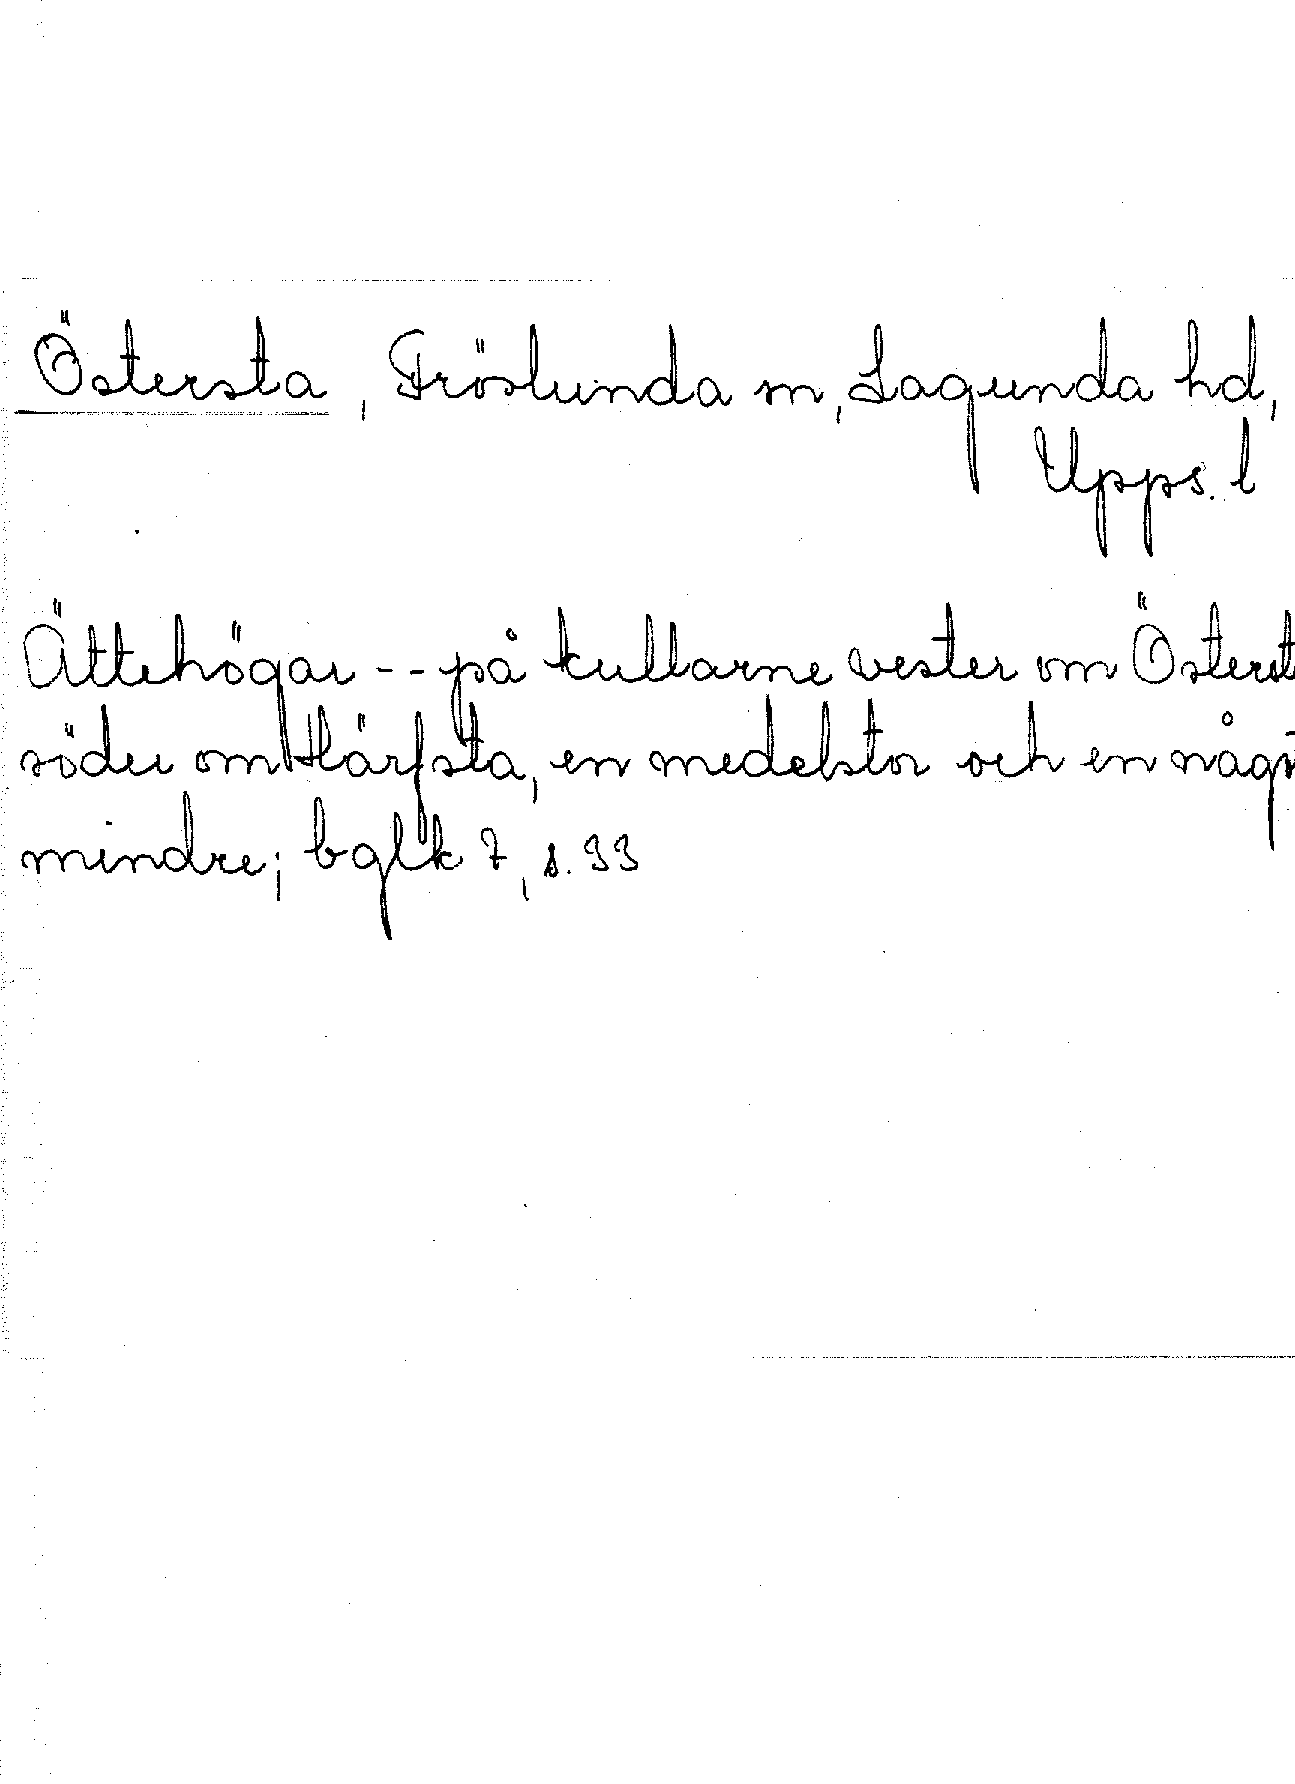 Östersta, Fröslunda sn, Lagunda hd,
Upps. l
Ättehögar -- på kullarne vester om Österst
söder om Härfsta, en medelstor och en någ
mindre; bglk 7, s. 33